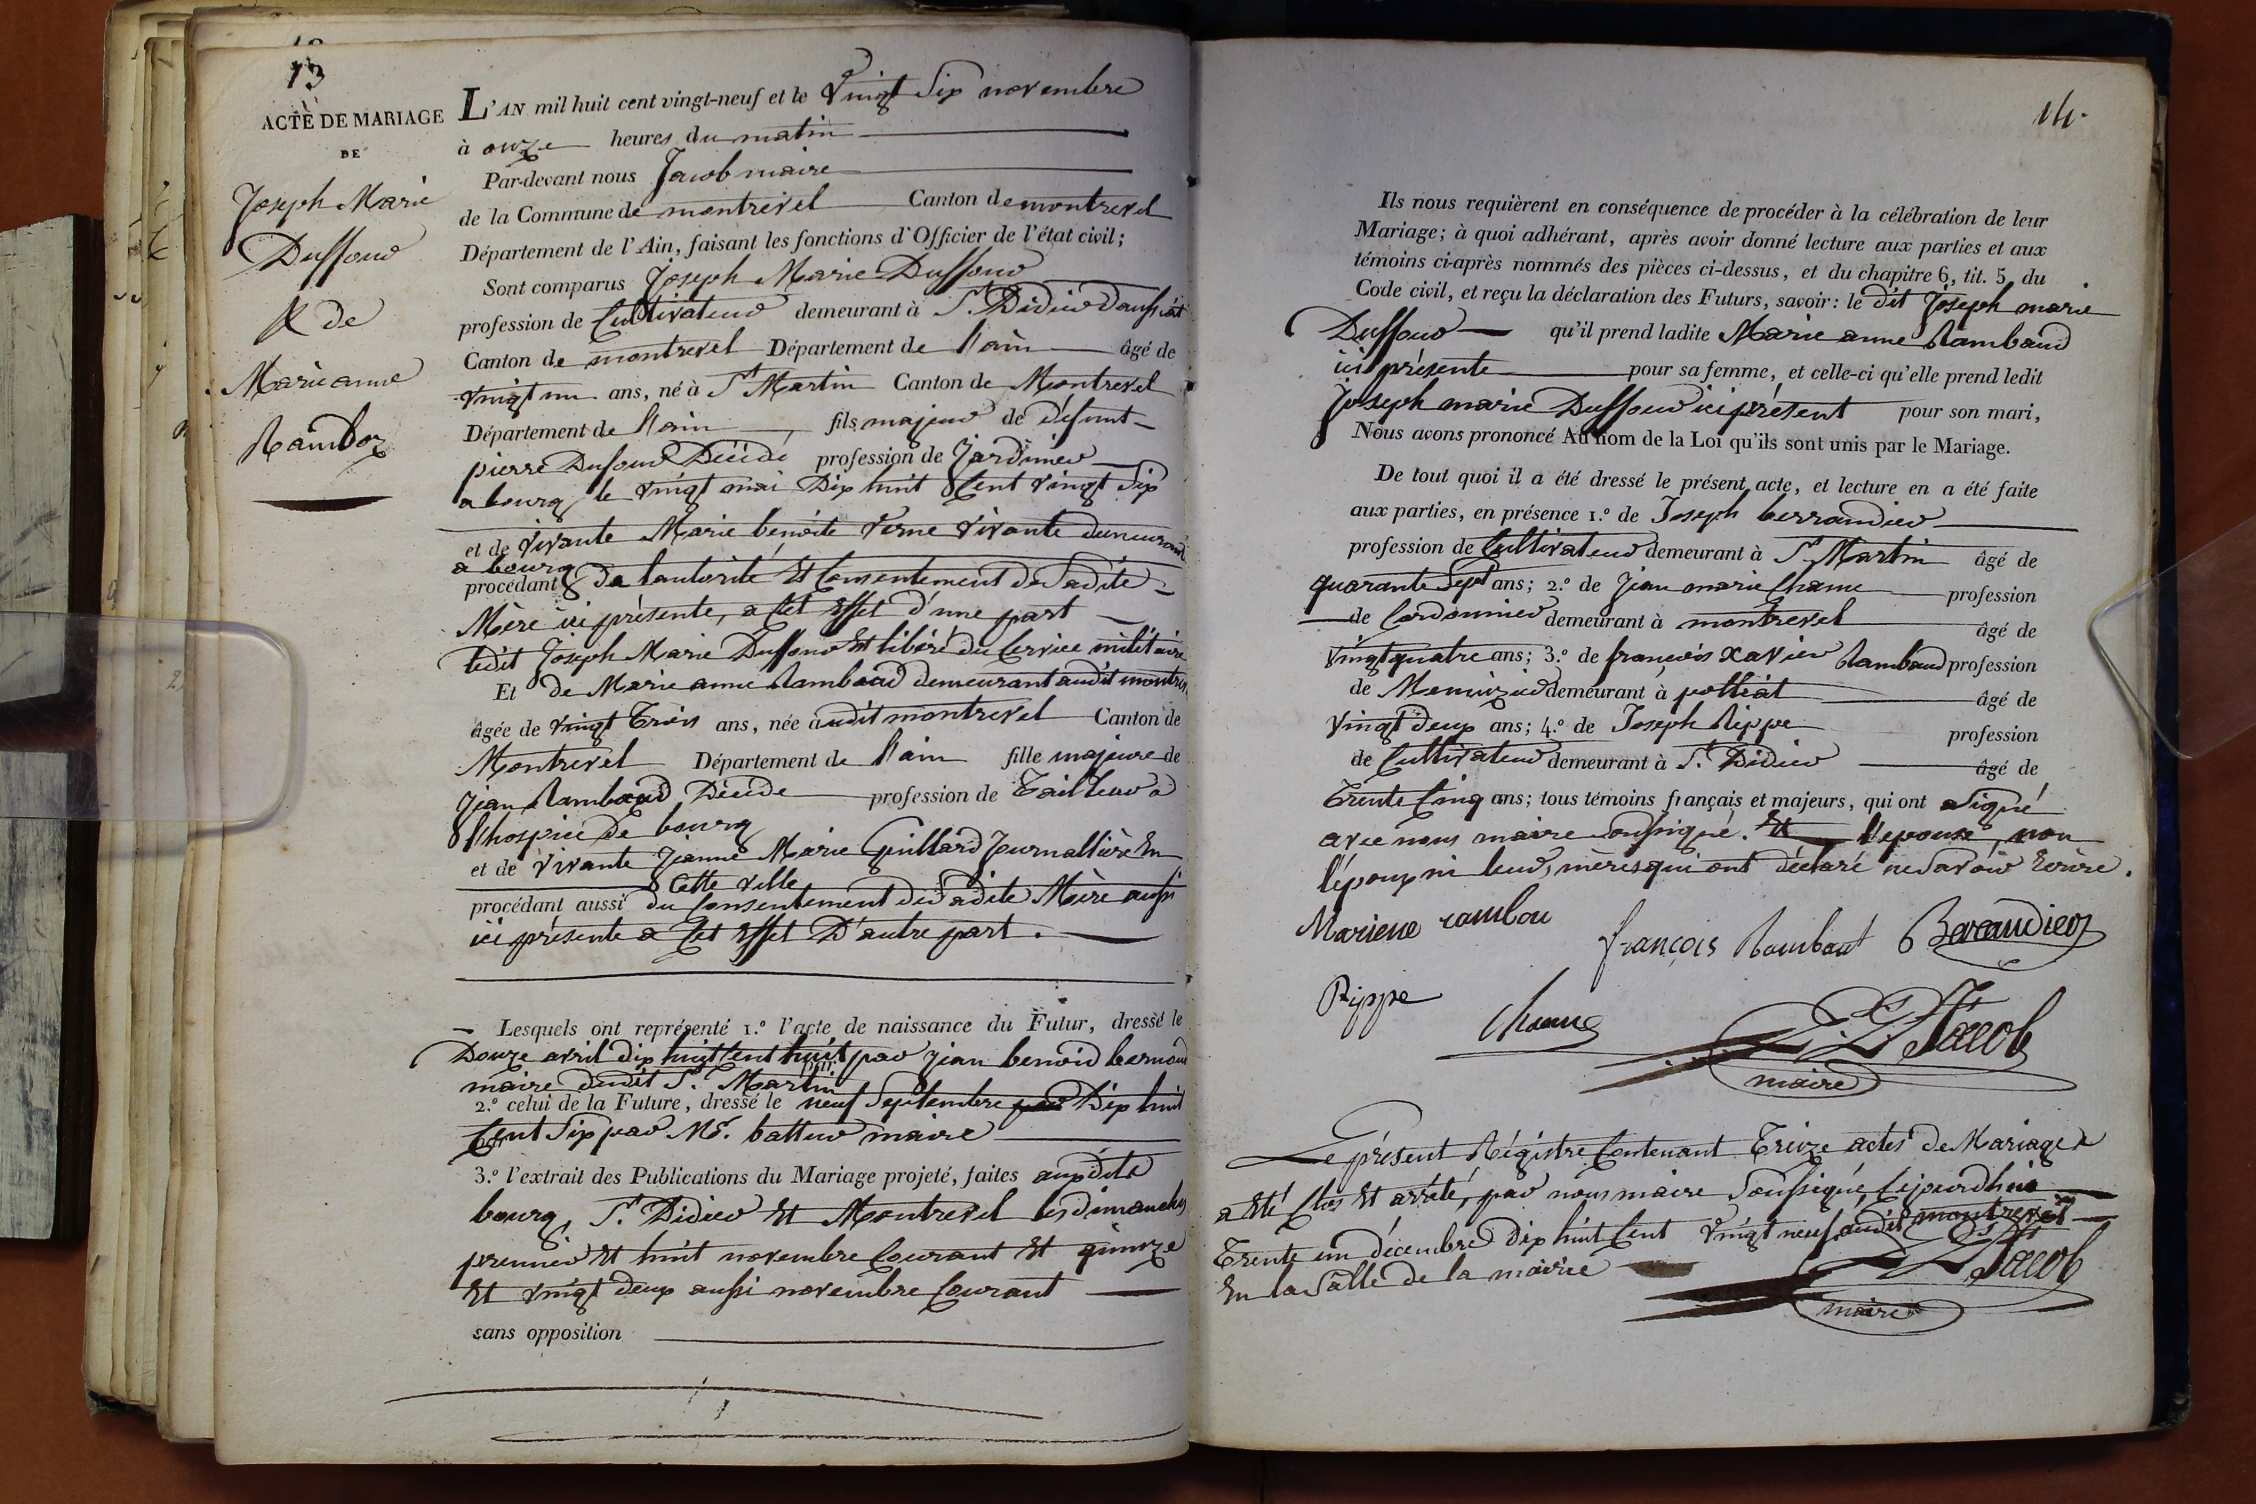 13
ACTE DE MARIAGE
DE
Joseph Marie
Duffour
& de
Marie anne
Ramboz
L'AN mil huit cent vingt-neuf et le Vingt Six novembre
à onze heures du matin
Par-devant nous Jacob maire
de la Commune de montrevel Canton de montrevel
Département de l'Ain, faisant les fonctions d'Officier de l'état civil;
Sont comparus Joseph Marie Duffour
profession de Cultivateur demeurant à St. Didier daussiat
Canton de montrevel Département de l'ain âgé de
vingt un ans, né à St Martin Canton de Montrevel
Département de l'ain fils majeur de défunt
pierre Dufour Décédé profession de Jardinier
a bourg le vingt mai Dix huit Cent vingt Six
et de vivante Marie benoite Verne vivante demeurant
a bourg
procédant De l'autorité Et Consentement de Sadite
Mère ici présente, a Cet Effet d'une part
ledit Joseph Marie Duffour Est libéré du Service militaire
Et de Marie anne Rambaud demeurant audit montrevel
âgée de vingt Trois ans, née audit montrevel Canton de
Montrevel Département de l'ain fille majeure de
Jean Rambaud Décédé profession de Tailleur a
l'hospice de bourg
et de vivante Jeanne Marie Guillard Journallière En
Cette ville
procédant aussi du Consentement de Sadite Mère aussi
ici présente a Cet Effet D'autre part.
Lesquels ont représenté 1.º l'acte de naissance du Futur, dressé le
Douze avril dix huit Cent huit par jean benoid bernard
maire dudit St. Martin
2.º celui de la Future, dressé le neuf Septembre par Dix huit
Cent Six par Mr. batteur maire
3.º l'extrait des Publications du Mariage projeté, faites auxdits
bourg, St. Didier Et Montrevel les dimanches
premier Et huit novembre Courant Et quinze
Et vingt deux aussi novembre Courant
sans opposition
14.
Ils nous requièrent en conséquence de procéder à la célébration de leur
Mariage; à quoi adhérant, après avoir donné lecture aux parties et aux
témoins ci-après nommés des pièces ci-dessus, et du chapitre 6, tit. 5, du
Code civil, et reçu la déclaration des Futurs, savoir: le dit Joseph marie
Duffour qu'il prend ladite Marie anne Rambaud
ici présente pour sa femme, et celle-ci qu'elle prend ledit
Joseph marie Duffour ici présent pour son mari,
Nous avons prononcé Au nom de la Loi qu'ils sont unis par le Mariage.
De tout quoi il a été dressé le présent acte, et lecture en a été faite
aux parties, en présence 1.º de Joseph berraudier
profession de Cultivateur demeurant à St Martin âgé de
quarante Sept ans; 2.º de Jean marie Chanu profession
de Cordonnier demeurant à montrevel âgé de
vingt quatre ans; 3.º de françois Xavier Rambaud profession
de Menuizier demeurant à polliat âgé de
vingt deux ans; 4.º de Joseph Rippe profession
de Cultivateur demeurant à St. Didier âgé de
Trente Cinq ans; tous témoins français et majeurs, qui ont Signé
avec nous maire Soussigné. Et l'épouse, non
l'époux ni leurs mères qui ont déclaré ne Savoir Ecrire.
Mariene rambou
françois Rambaut
Beraudier
Rippe
Chanu
Jacob
maire
Le présent Régistre Contenant Treize actes de Mariage
a Eté Clos Et arrêté, par nous maire Soussigné, Cejourdhuis
Trente un décembre Dix huit Cent vingt neuf audit montrevel
En la Salle de la mairie
Jacob
maire